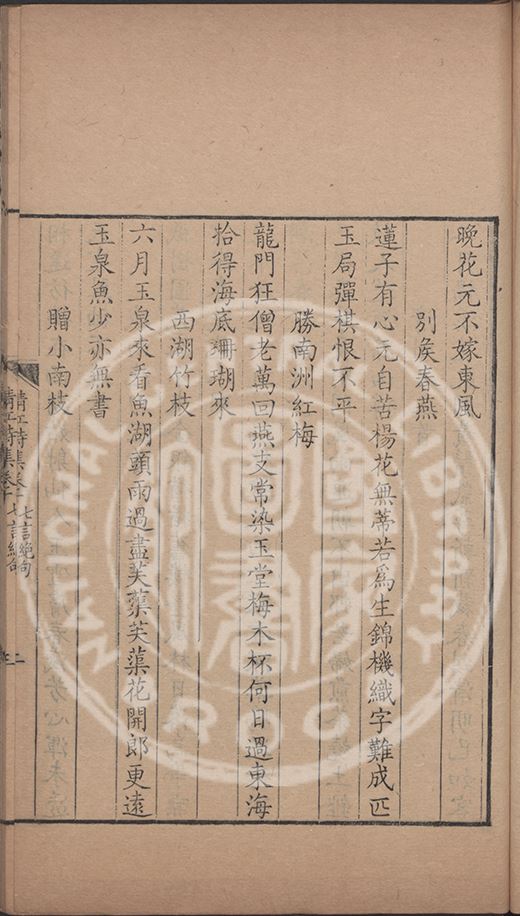 晩花元不嫁東風
別矦春燕
蓮子有心元自苦楊花無蒂若爲生錦機織字難成匹
玉局彈棋恨不平
勝南洲紅梅
龍門狂僧老萬回燕支常染玉堂梅木杯何日過東海
拾得海底珊瑚來
西湖竹枝
六月玉泉來看魚湖頭雨過盡芙蕖芙蕖花開郎更遠
玉泉魚少亦無書
贈小南枝
清江詩集卷十 七言絕句